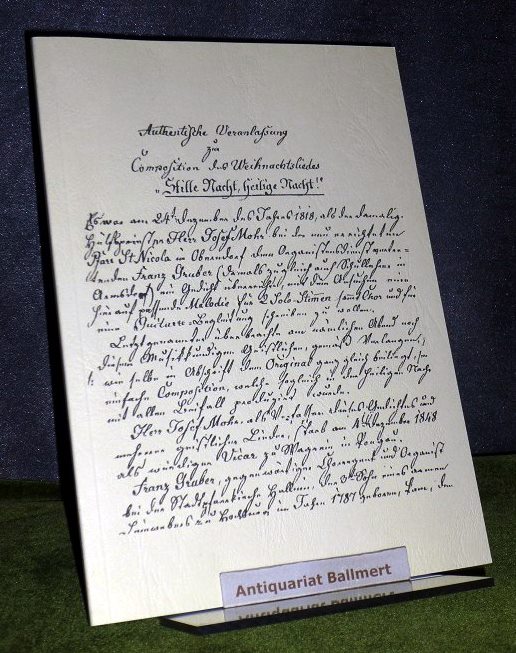 Authentische Veranlaßung
zur
Composition des Weihnachtsliedes
„Stille Nacht, heilige Nacht!“
Es war am 24t Dezember des Jahres 1818, als der damalige
Hülfspriester Herr Josef Mohr bei der neu errichteten
Pfarr St Nicola in Oberndorf dem Organistendienst vertre-
tenden Franz Gruber (damals zugleich auch Schullehrer in
Arnsdorf) ein Gedicht überreichte, mit dem Ansuchen eine
hierauf passende Melodie für 2 Solo-Stimen sammt Chor und für
eine Guitarre-Begleitung schreiben zu wollen.
Letztgenannter überbrachte am nämlichen Abend noch
diesem Musikkundigen Geistlichen, gemäß Verlangen,
so wie selbe in Abschrift dem Original ganz gleich beiliegt, seine
einfache Composition, welche sogleich in der heiligen Nacht
mit allem Beifall produzirt wurde.
Herr Josef Mohr, als Verfasser dieses Gedichtes und
mehrerer geistlichen Lieder, starb am 4t Dezember 1848
als würdiger Vicar zu Wagrein in Pongau.
Franz Gruber, gegenwärtiger Chorregent und Organist
bei der Stadtpfarrkirche Hallein, der 3te Sohn eines armen
Leinwebers zu Hochburg im Jahre 1787 geboren, kam, den
Antiquariat Ballmert